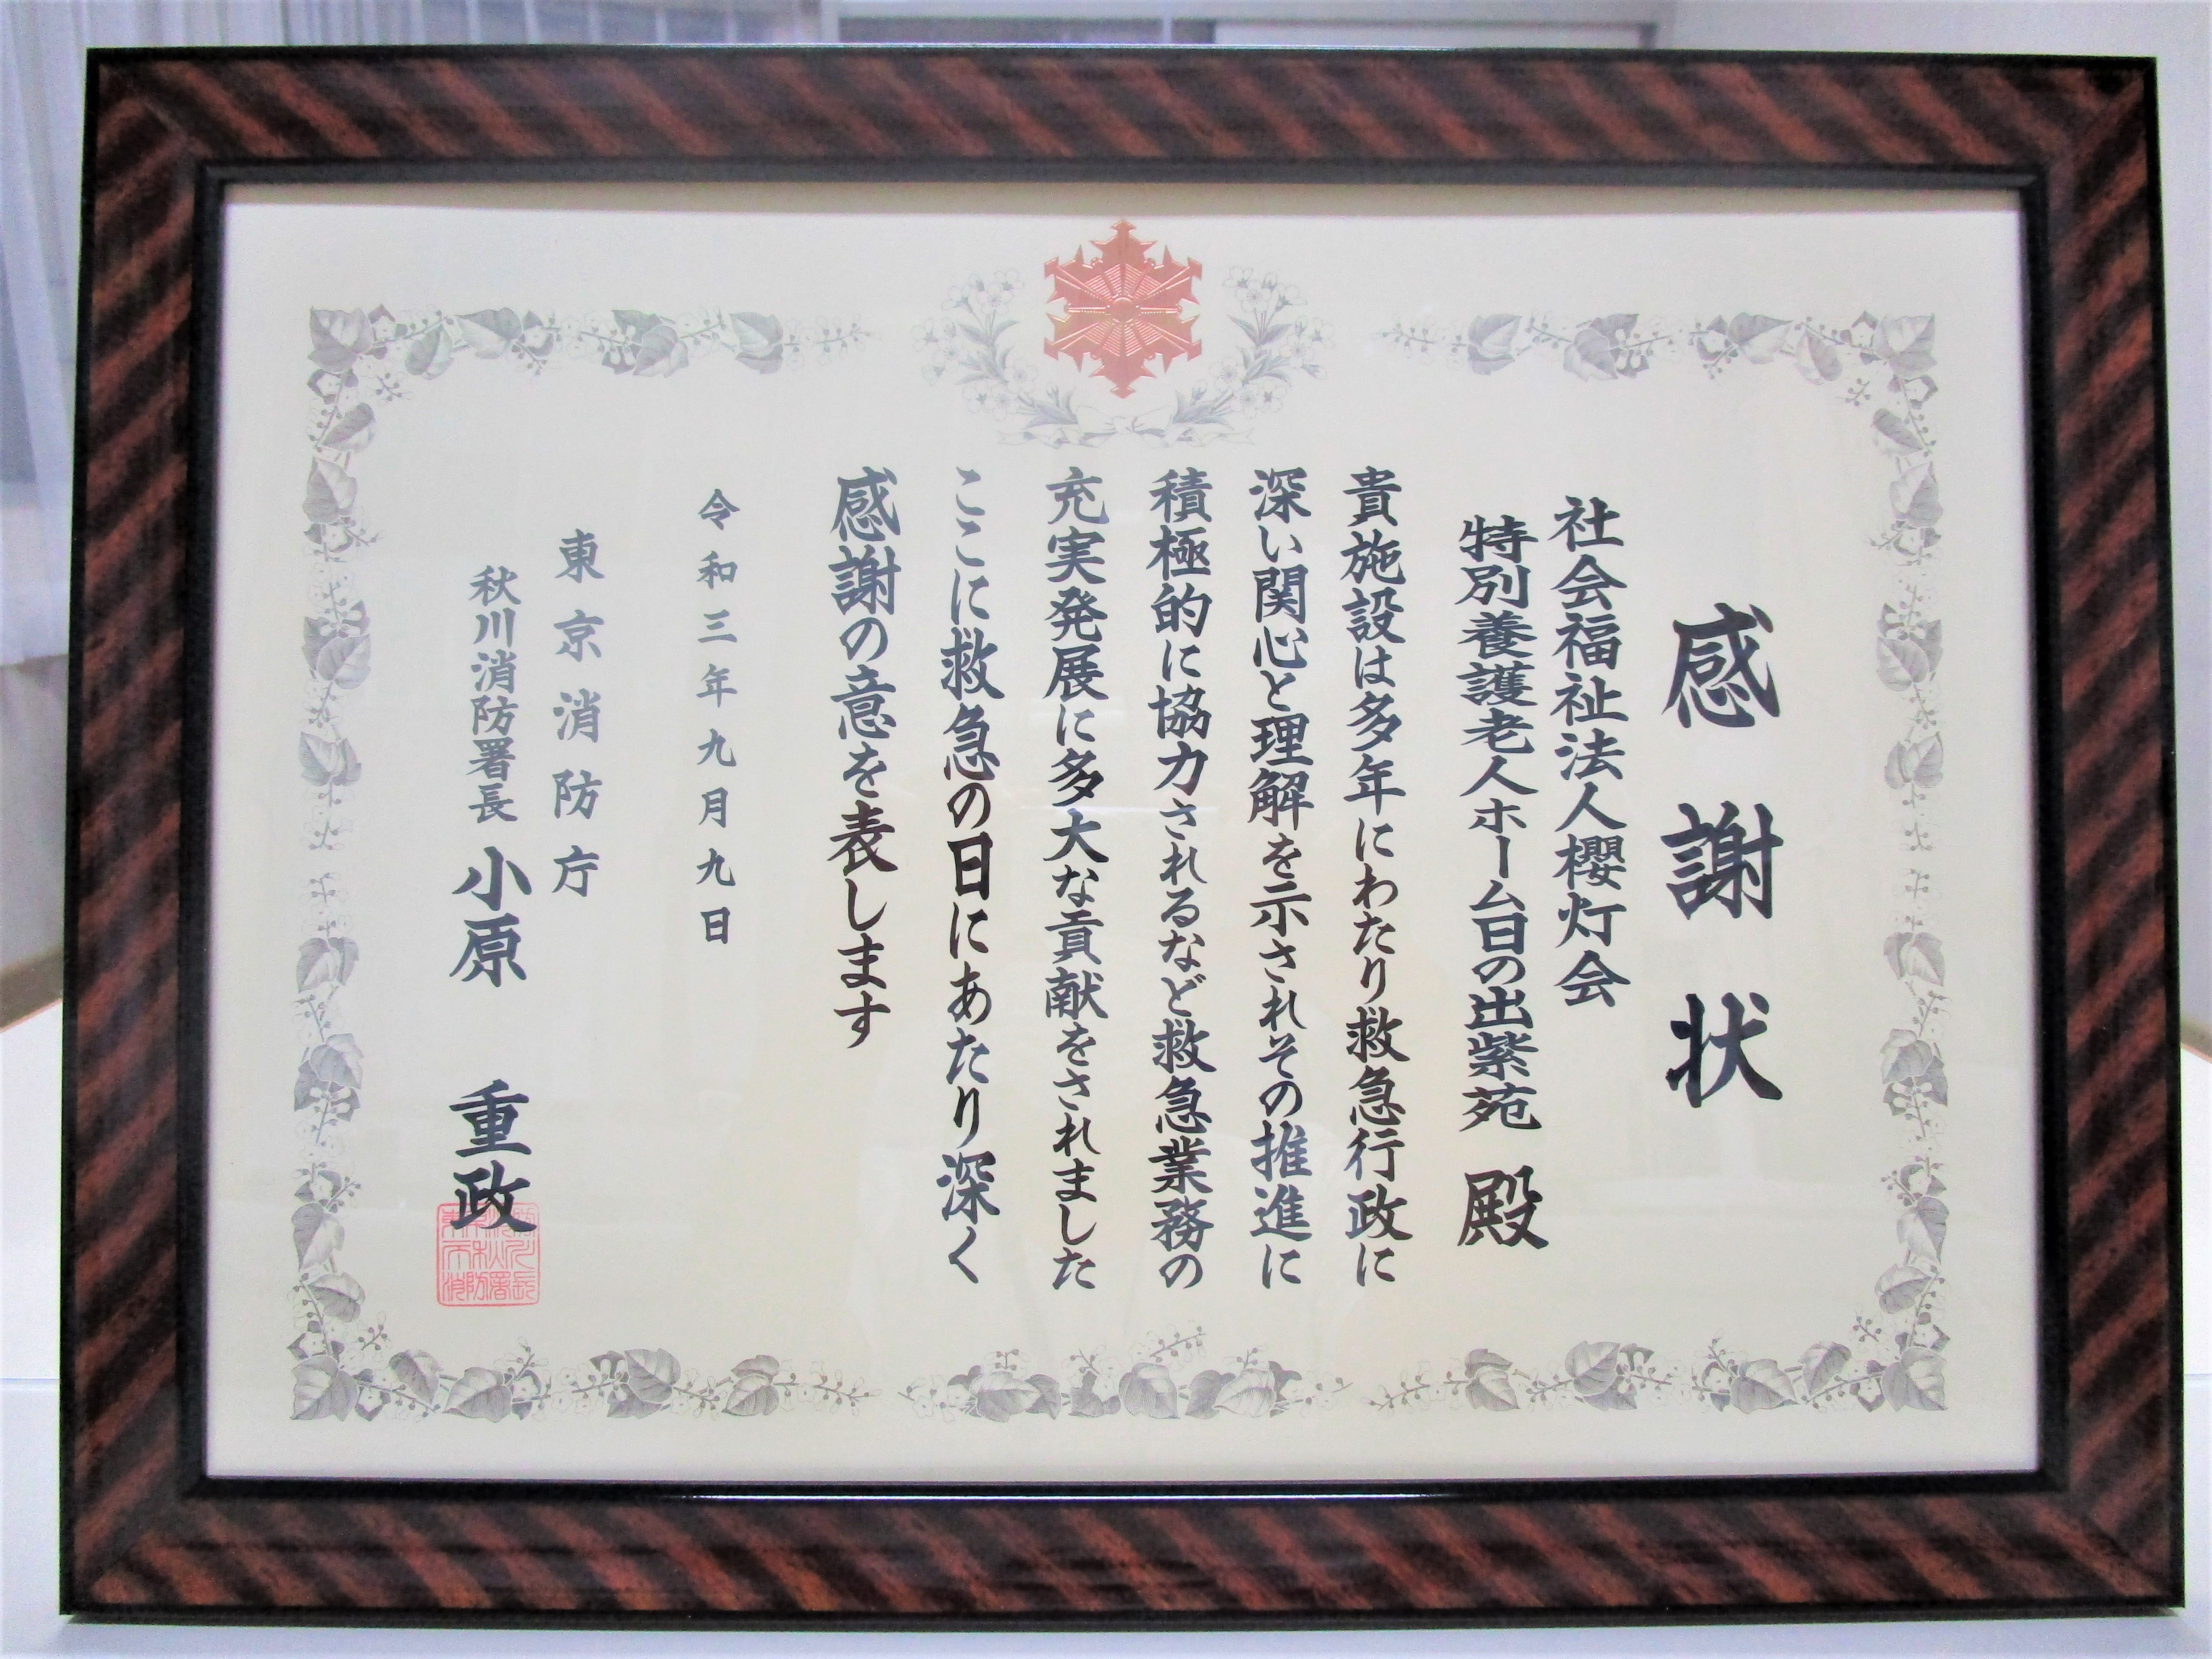 感謝状
社会福祉法人櫻灯会
特別養護老人ホーム日の出紫苑 殿
貴施設は多年にわたり救急行政に
深い関心と理解を示されその推進に
積極的に協力されるなど救急業務の
充実発展に多大な貢献をされました
ここに救急の日にあたり深く
感謝の意を表します
令和三年九月九日
東京消防庁
秋川消防署長 小原 重政